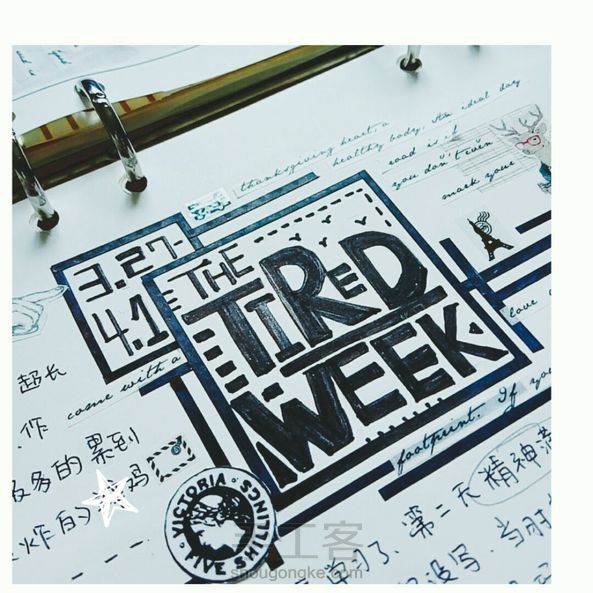 thanksgiving heart, a
healthy body, An ideal day.
road is if
you don't even
mark your
3.27-
4.1
THE
TIReD
WEEK
love
come with a
footprint. If you
超长
作
多的累到
鸡
炸自
VICTORIA
FIVE SHILLINGS
第二天精神
学习了、
没写、当时
手工客
shougongke.com